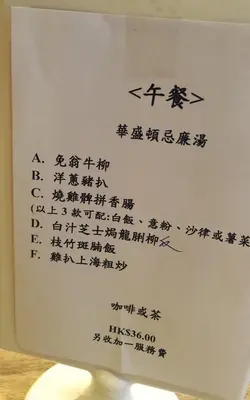 <午餐>
華盛頓忌廉湯
A. 免翁牛柳
B. 洋蔥豬扒
C. 燒雞髀拼香腸
(以上 3 款可配:白飯、意粉、沙律或薯菜
D. 白汁芝士焗龍脷柳
E. 枝竹斑腩飯
F. 雞扒上海粗炒
咖啡或茶
HK$36.00
另收加一服務費